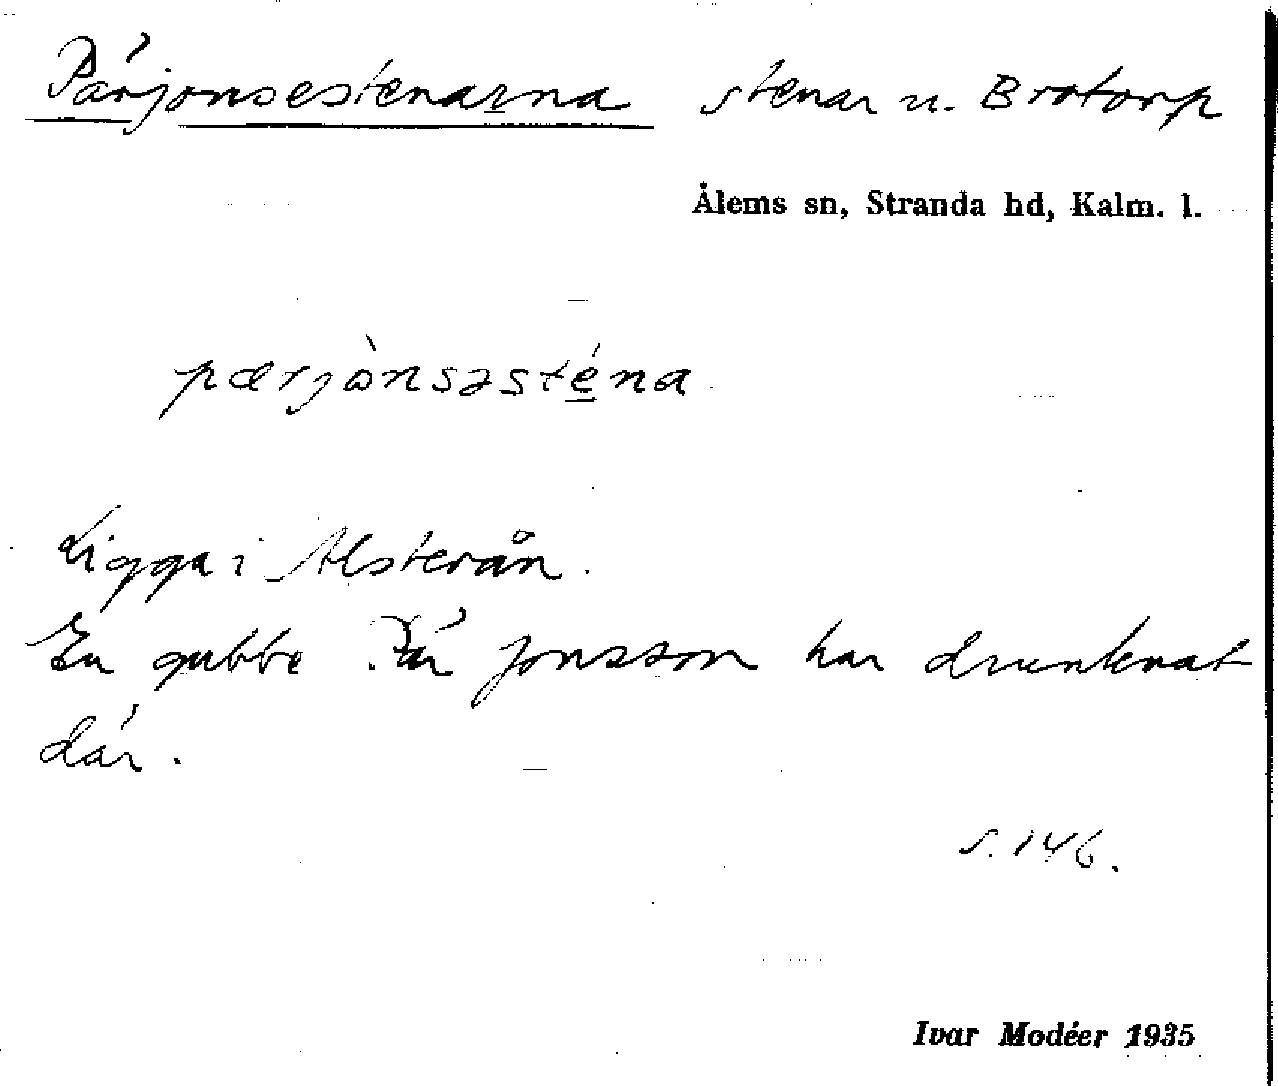 Pärjonsestenarna stenar u. Brotorp
Ålems sn, Stranda hd, Kalm. l.
pærjònsəsténa
Ligga i Alsterån.
En gubbe Pär Jonsson har drunknat
där.
s. 146.
Ivar Modéer 1935